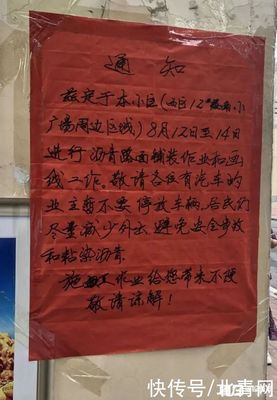 通知
兹定于本小区(西区12#楼南小
广场周边区域)8月12日至14日
进行沥青路面铺装作业和画
线工作。敬请各位有汽车的
业主暂不要停放车辆,居民们
尽量减少外出,避免安全事故
和粘染沥青.
施工作业给您带来不便
敬请谅解!
快传号/北青网